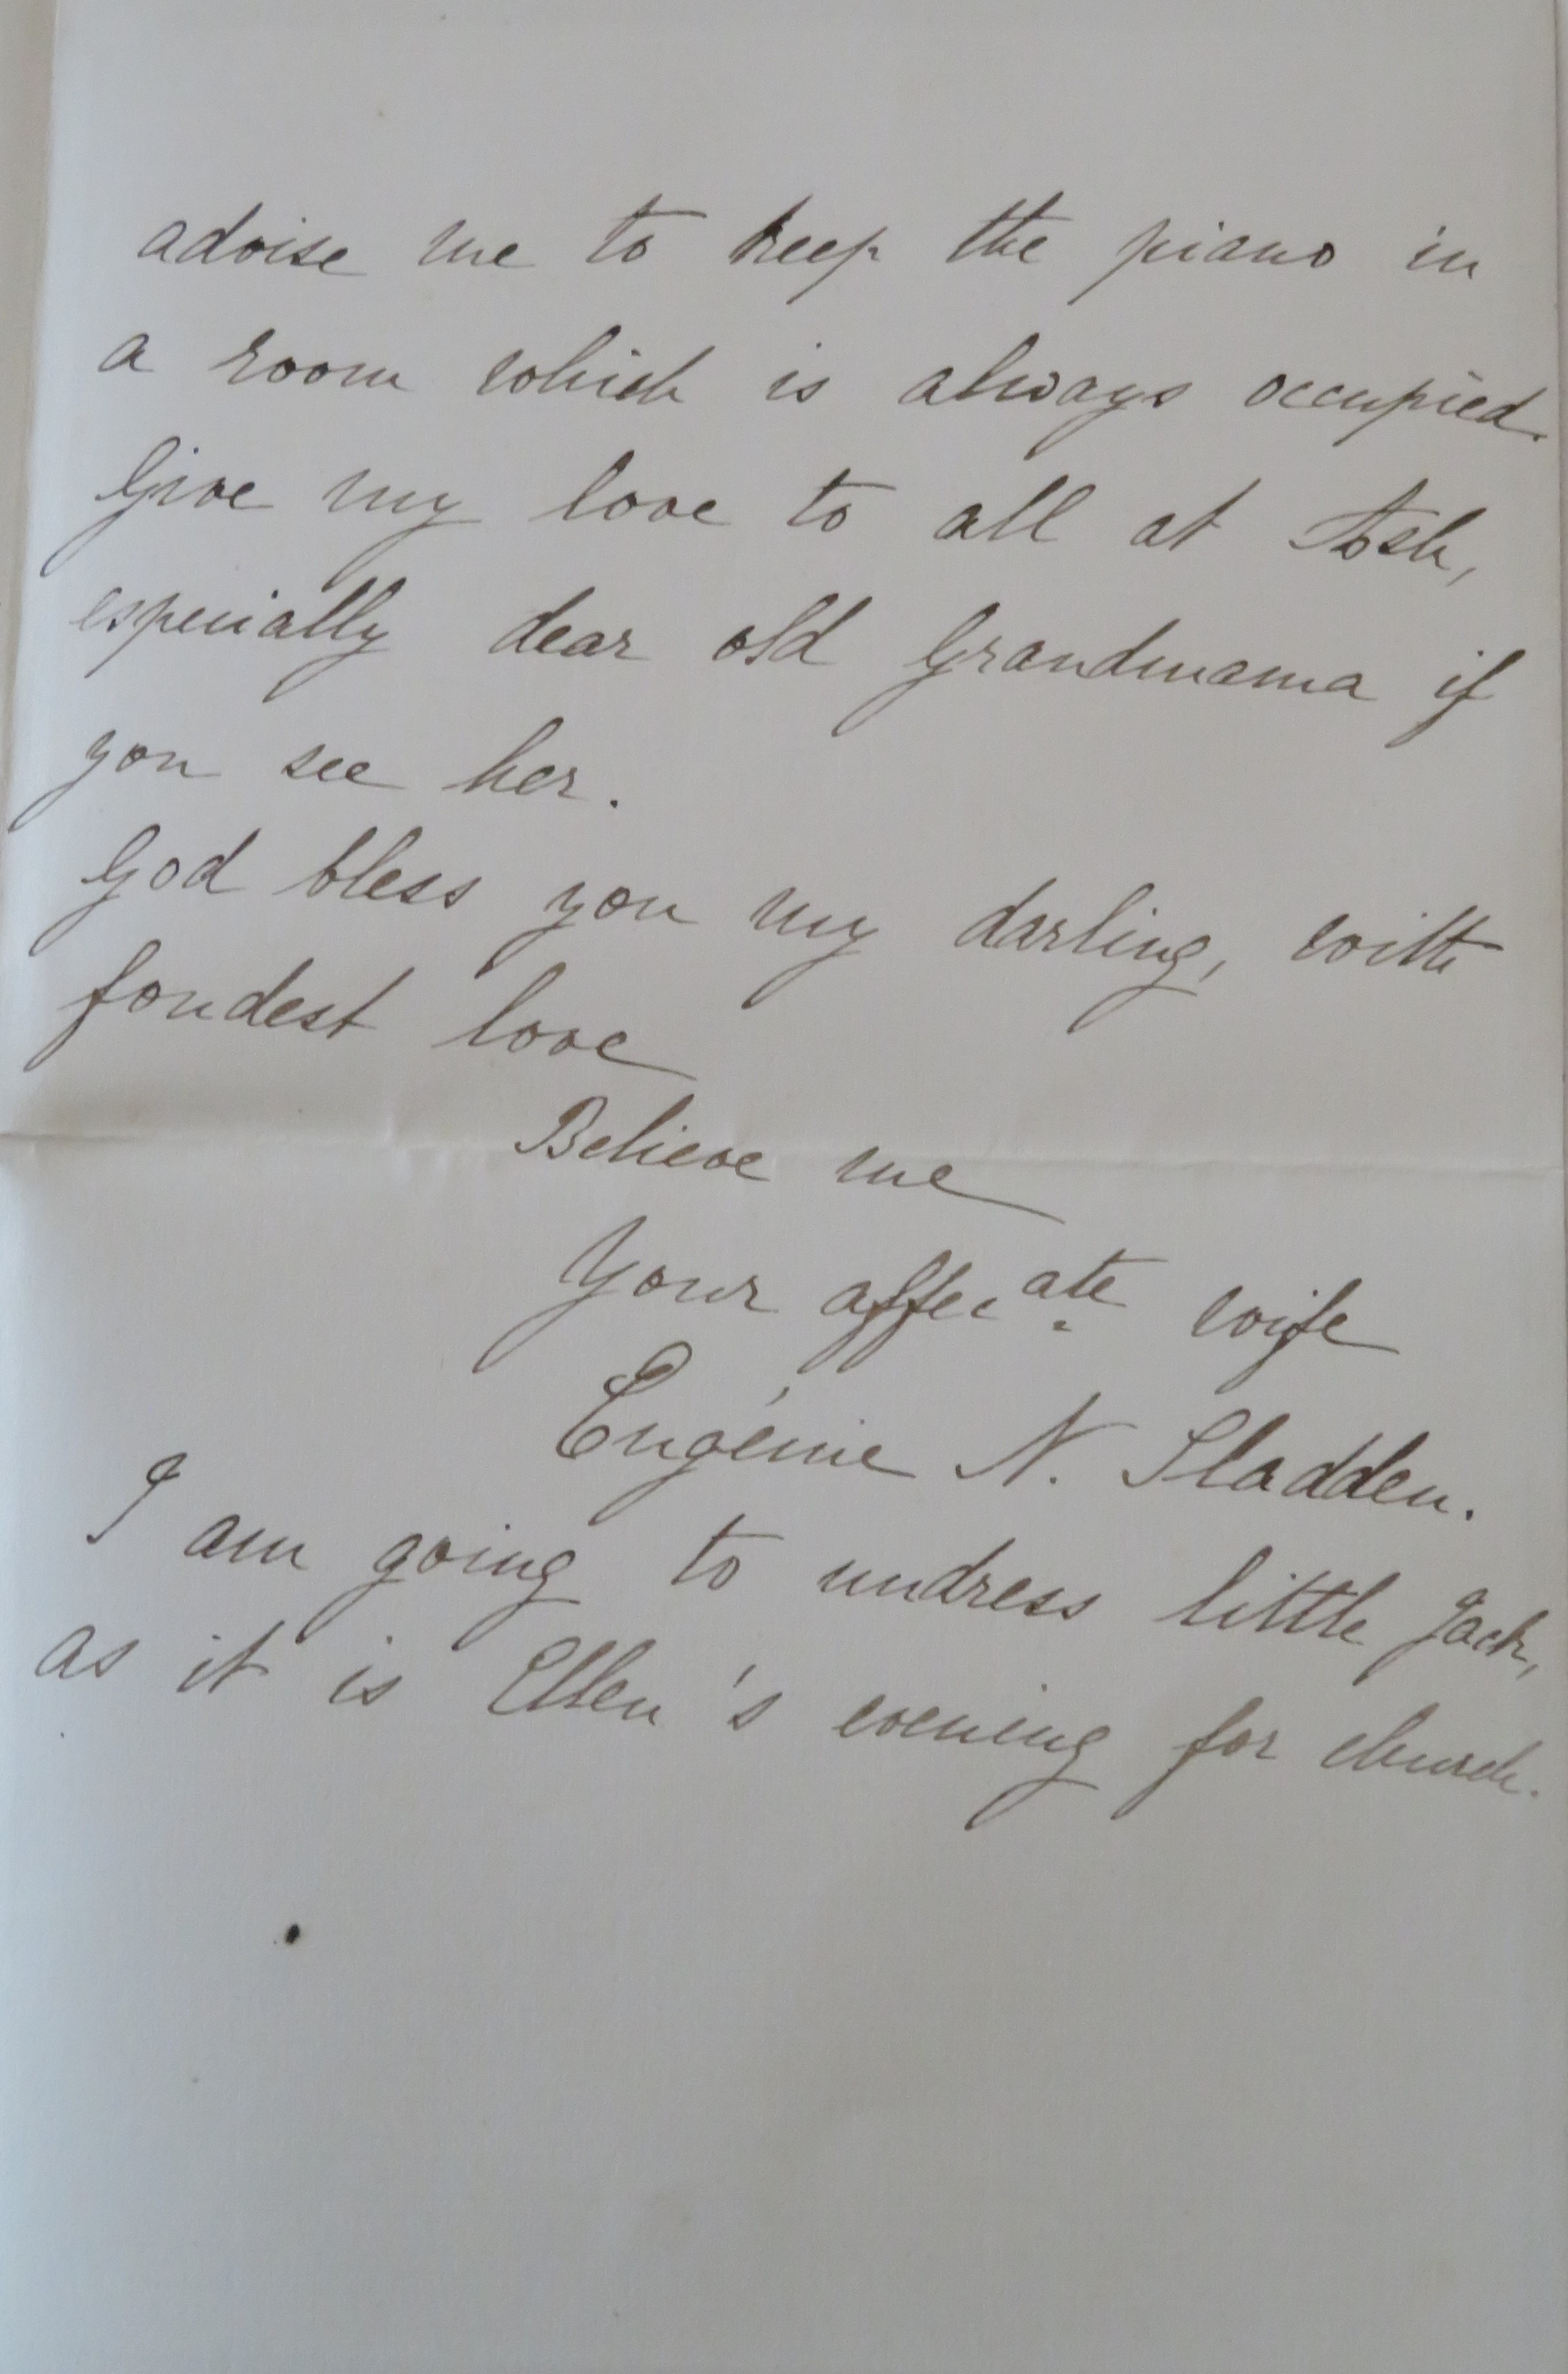 advise me to keep the piano in
a room which is always occupied.
Give my love to all at Ash,
especially dear old Grandmama if
you see her.
God bless you my darling, with
fondest love
Believe me
Your affecate wife
Eugénie N. Sladden.
I am going to undress little Jack,
as it is Ellen's evening for church.